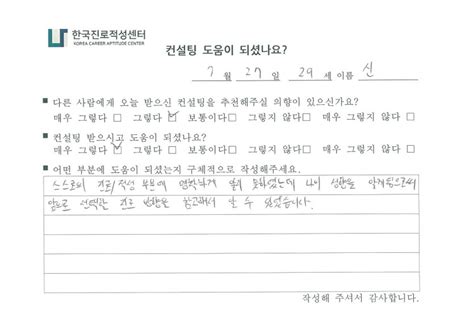 한국진로적성센터
KOREA CAREER APTITUDE CENTER
컨설팅 도움이 되셨나요?
7 월 27 일 29 세 이름 신
■ 다른 사람에게 오늘 받으신 컨설팅을 추천해주실 의향이 있으신가요?
매우 그렇다 □ 그렇다 ☑ 보통이다 □ 그렇지 않다 □ 매우 그렇지 않다 □
■ 컨설팅 받으시고 도움이 되셨나요?
매우 그렇다 ☑ 그렇다 □ 보통이다 □ 그렇지 않다 □ 매우 그렇지 않다 □
■ 어떤 부분에 도움이 되셨는지 구체적으로 작성해주세요.
스스로의 진로/적성 부분에 명확하게 알지 못하였는데 나의 성향을 알게됨으로써
앞으로 선택할 진로 방향을 참고해서 알 수 있었습니다.
작성해 주셔서 감사합니다.